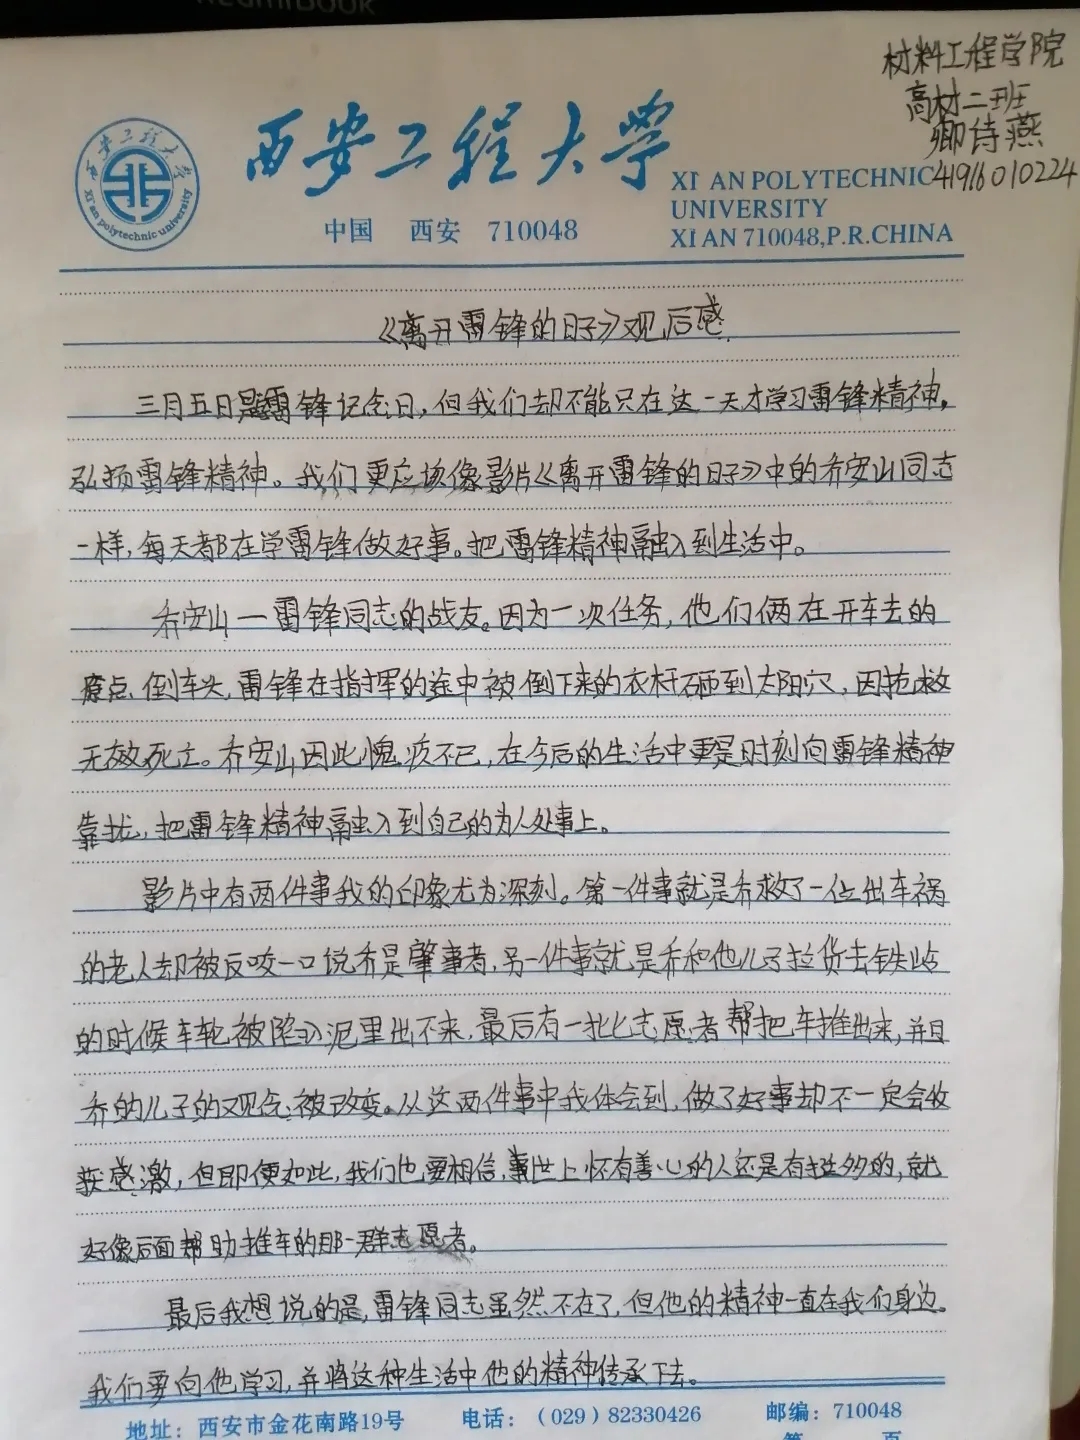 材料工程学院
高材二班
卿诗燕
41916010224
西安工程大学
XI AN POLYTECHNIC
UNIVERSITY
XI AN 710048,P.R.CHINA
中国 西安 710048
西安工程大学
Xi'an polytechnic university
《离开雷锋的日子》观后感
三月五日是雷锋记念日,但我们却不能只在这一天才学习雷锋精神,
弘扬雷锋精神。我们更应该像影片《离开雷锋的日子》中的乔安山同志
一样,每天都在学雷锋做好事。把雷锋精神融入到生活中。
乔安山—雷锋同志的战友。因为一次任务,他们俩在开车去的
点,倒车头,雷锋在指挥的途中被倒下来的衣杆砸到太阳穴,因抢救
无效死亡。乔安山因此愧疚不已,在今后的生活中更是时刻向雷锋精神
靠拢,把雷锋精神融入到自己的为人处事上。
影片中有两件事我的印象尤为深刻。第一件事就是乔救了一位出车祸
的老人却被反咬一口说乔是肇事者,另一件事就是乔和他儿子拉货去铁岭
的时候车轮被陷入泥里出不来,最后有一批志愿者帮把车推出来,并且
乔的儿子的观念被改变。从这两件事中我体会到,做了好事却不一定会收
获感激,但即便如此,我们也要相信,事世上怀有善心的人还是有挺多的,就
好像后面帮助推车的那一群志愿者。
最后我想说的是,雷锋同志虽然不在了,但他的精神一直在我们身边。
我们要向他学习,并将这种生活中他的精神传承下去。
地址:西安市金花南路19号 电话:(029)82330426 邮编:710048
第 页